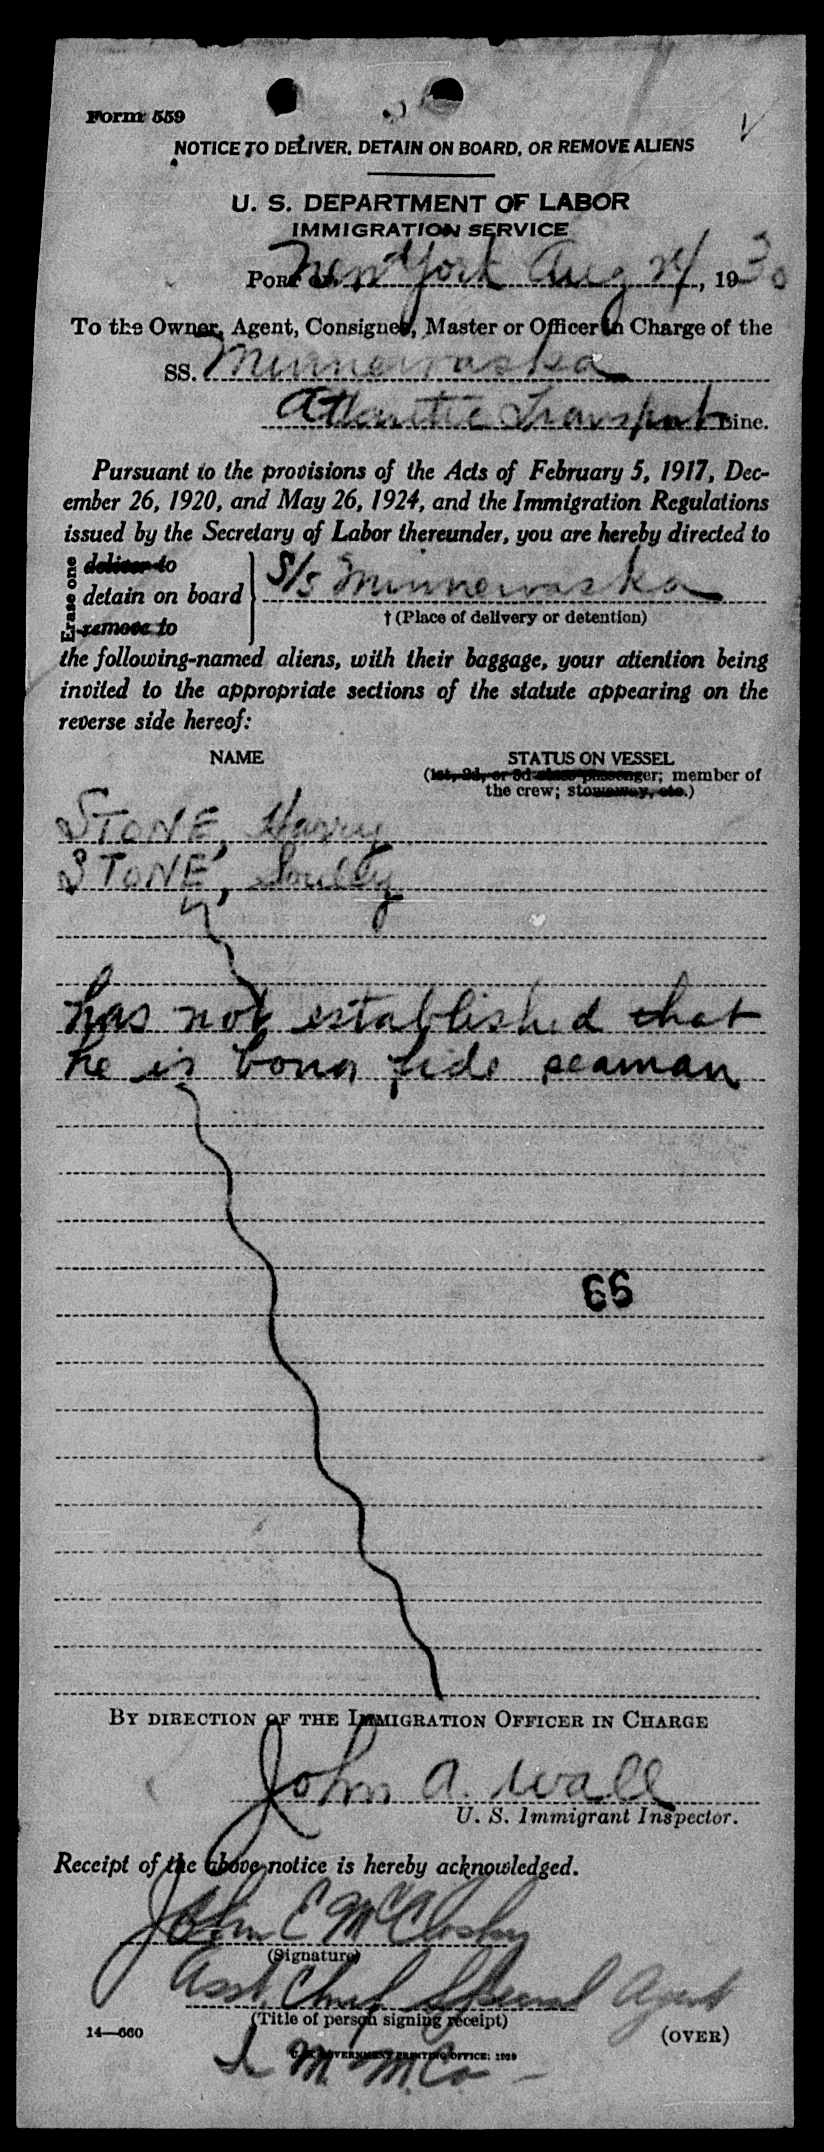 Form 559
NOTICE TO DELIVER, DETAIN ON BOARD, OR REMOVE ALIENS
U. S. DEPARTMENT OF LABOR
IMMIGRATION SERVICE
PORT OF New York Aug 24, 1930
To the Owner, Agent, Consignee, Master or Officer in Charge of the
SS. Minnewaska
Atlantic Transport Line.
Pursuant to the provisions of the Acts of February 5, 1917, Dec-
ember 26, 1920, and May 26, 1924, and the Immigration Regulations
issued by the Secretary of Labor thereunder, you are hereby directed to
Erase one
deliver to
detain on board
remove to
S/s Minnewaska
† (Place of delivery or detention)
the following-named aliens, with their baggage, your attention being
invited to the appropriate sections of the statute appearing on the
reverse side hereof:
NAME STATUS ON VESSEL
(1st, 2d, or 3d class passenger; member of
the crew; stowaway, etc.)
STONE, Harry
STONE,
has not established that
he is bona fide seaman
66
BY DIRECTION OF THE IMMIGRATION OFFICER IN CHARGE
John A. Wall
U. S. Immigrant Inspector.
Receipt of the above notice is hereby acknowledged.
John E McClosky
(Signature)
Asst. Chief Special Agent
(Title of person signing receipt)
14—660 (OVER)
U. S. GOVERNMENT PRINTING OFFICE: 1929
I. M. M. Co